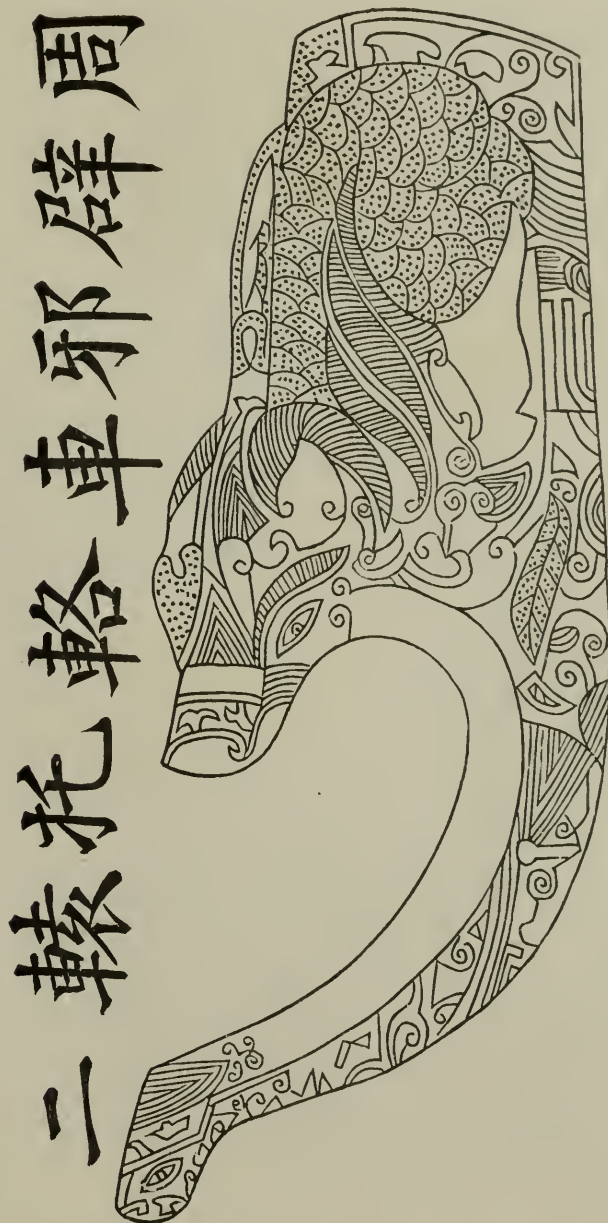 周辟邪車輅托轅二